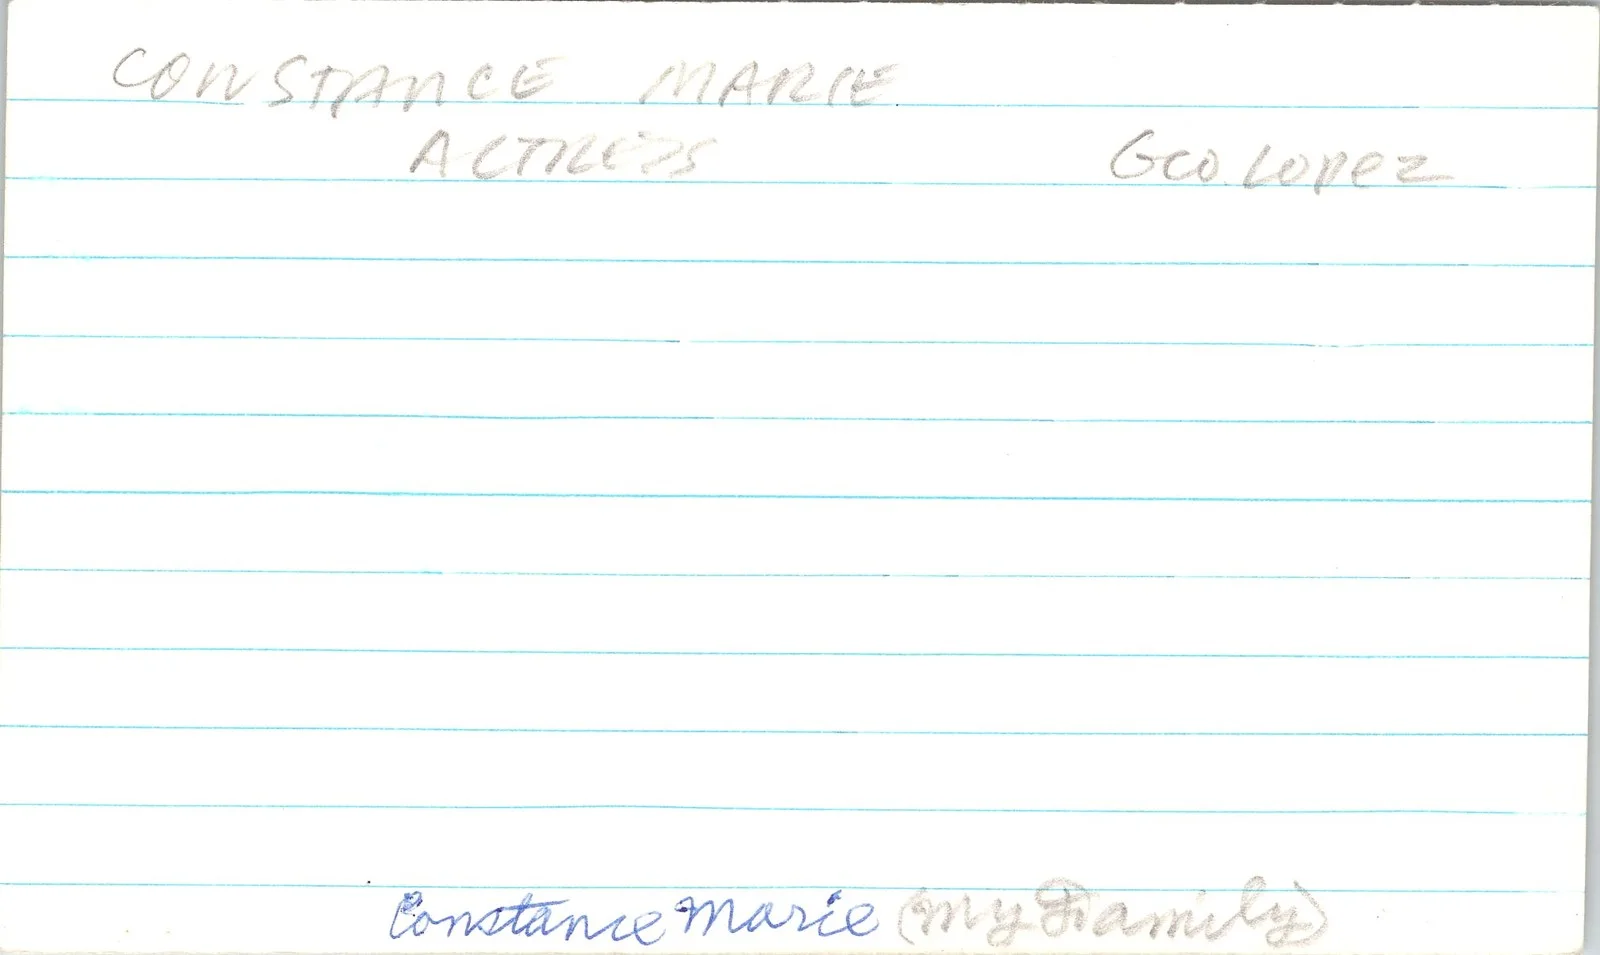 CONSTANCE MARIE
ACTRESS Geo. Lopez
Constance Marie (My Family)